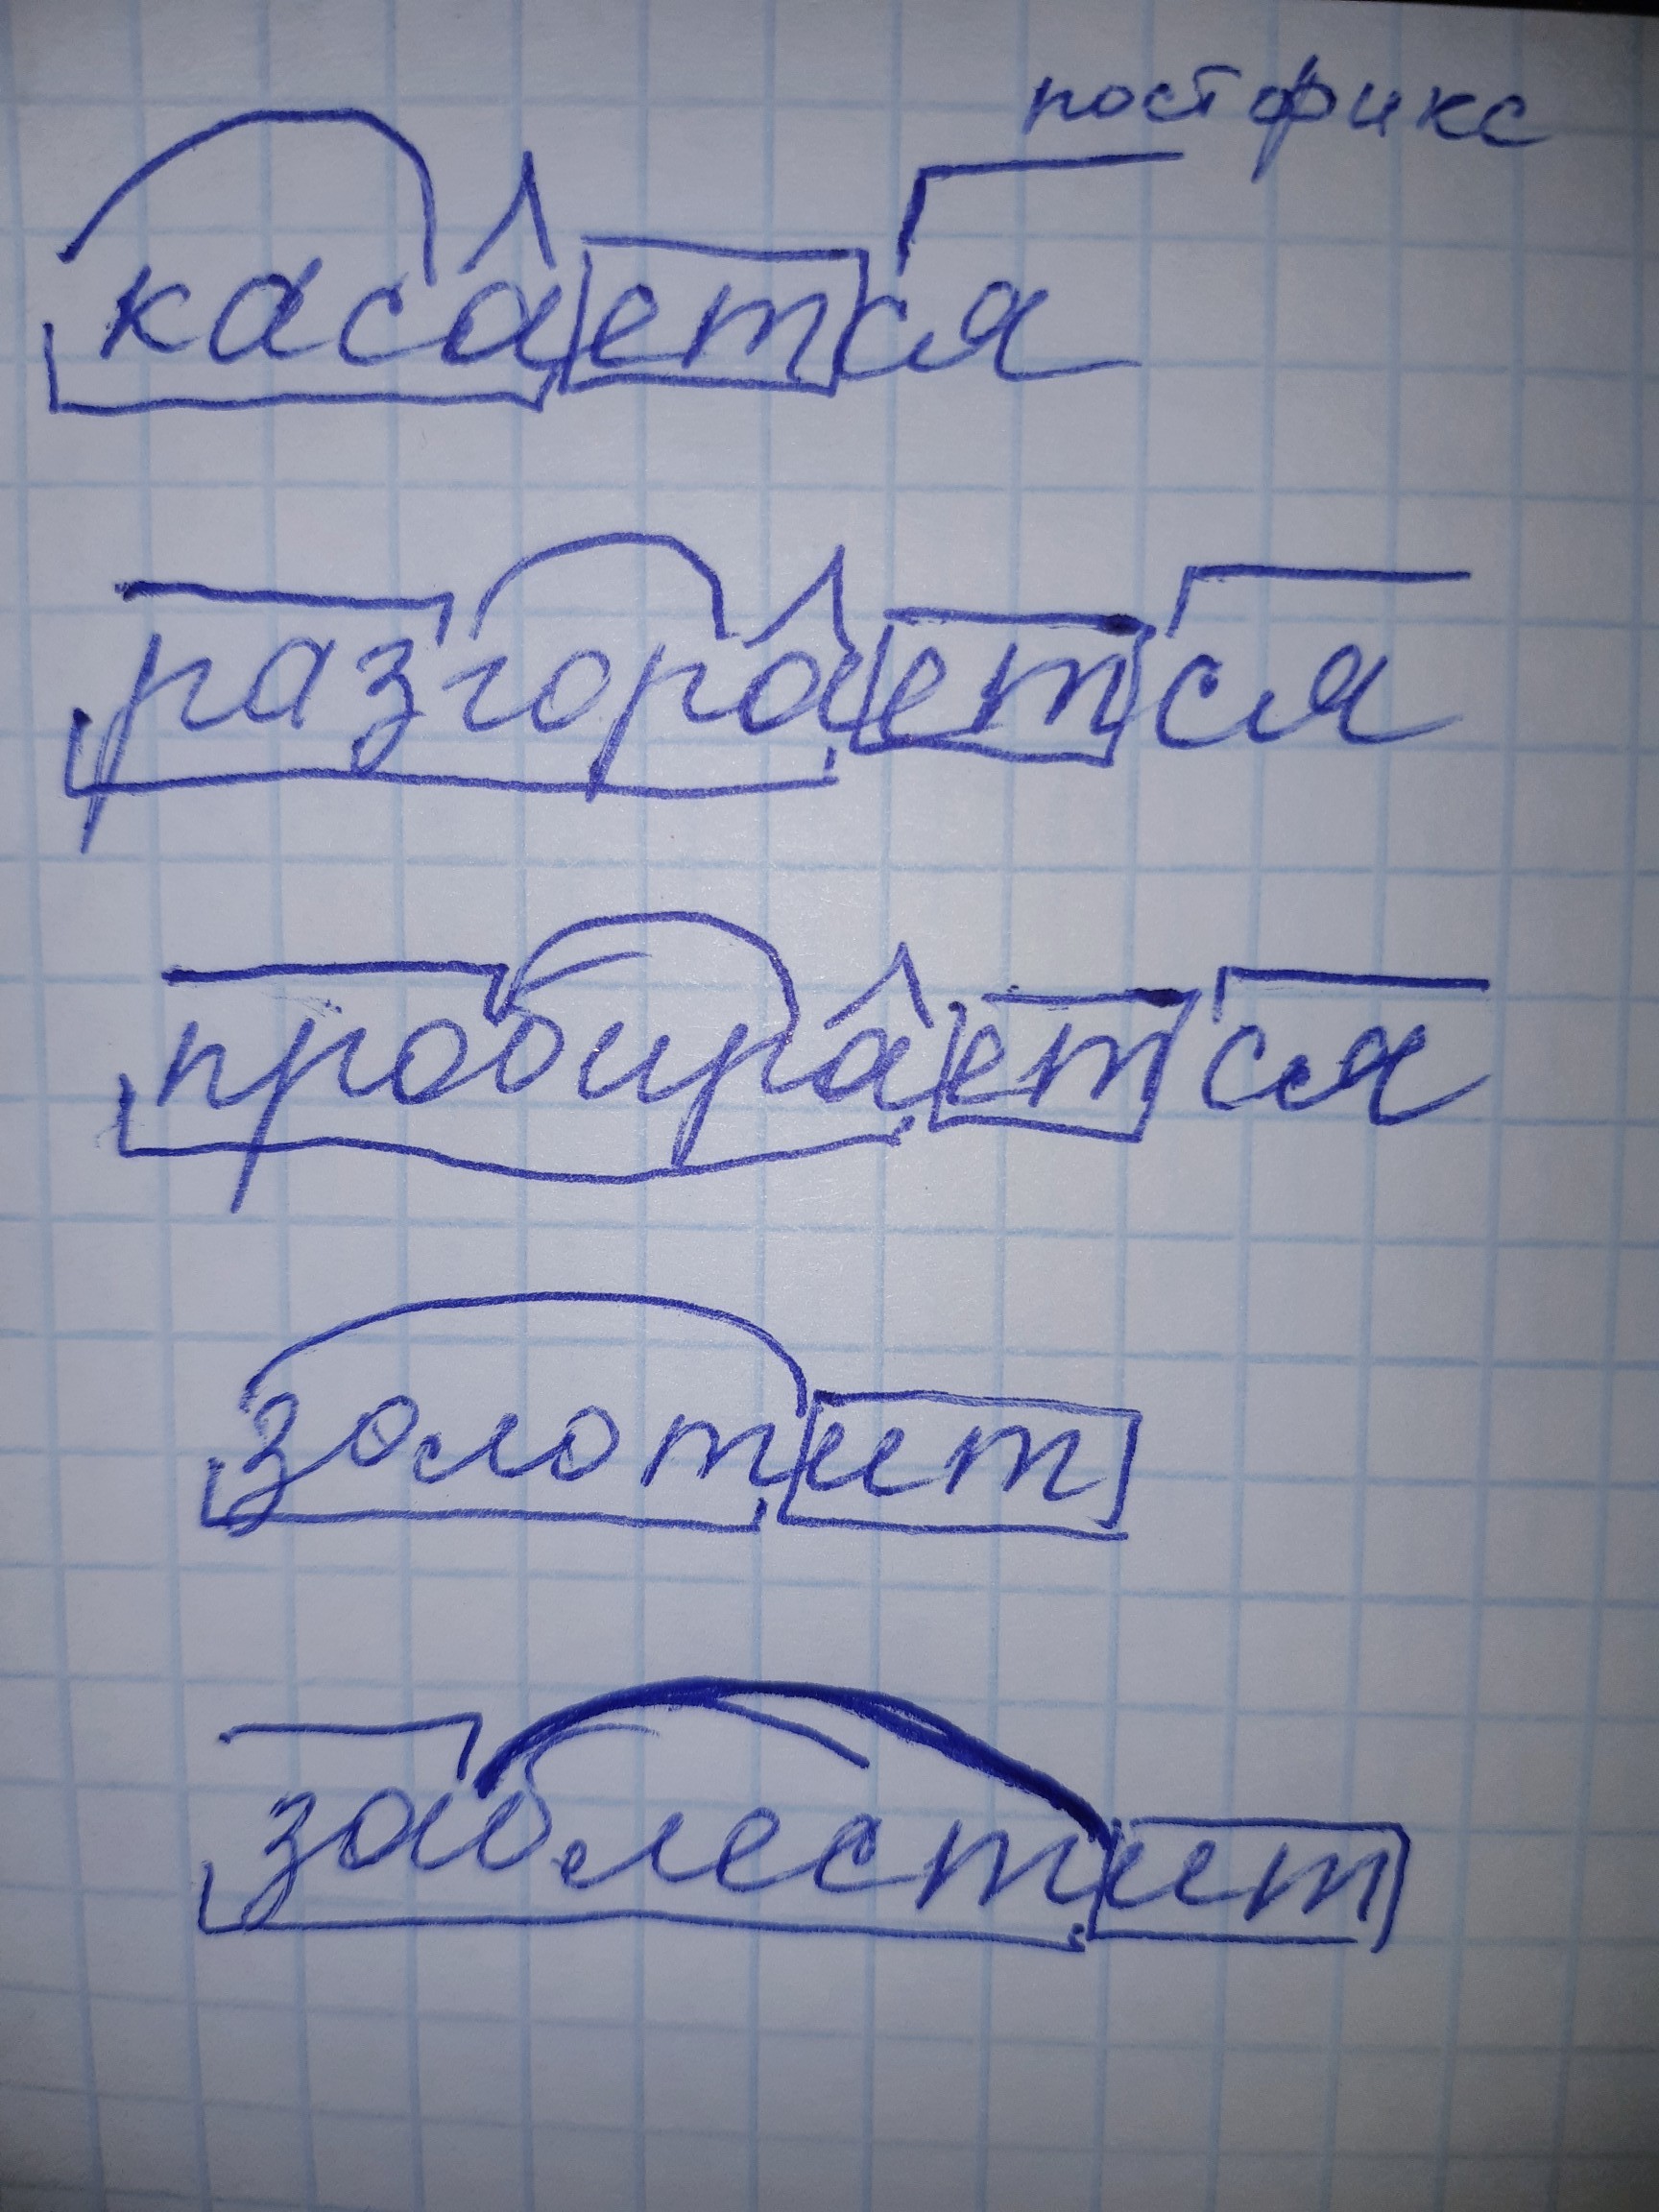 постфикс
касается
разгорается
пробирается
золотит
заблестит